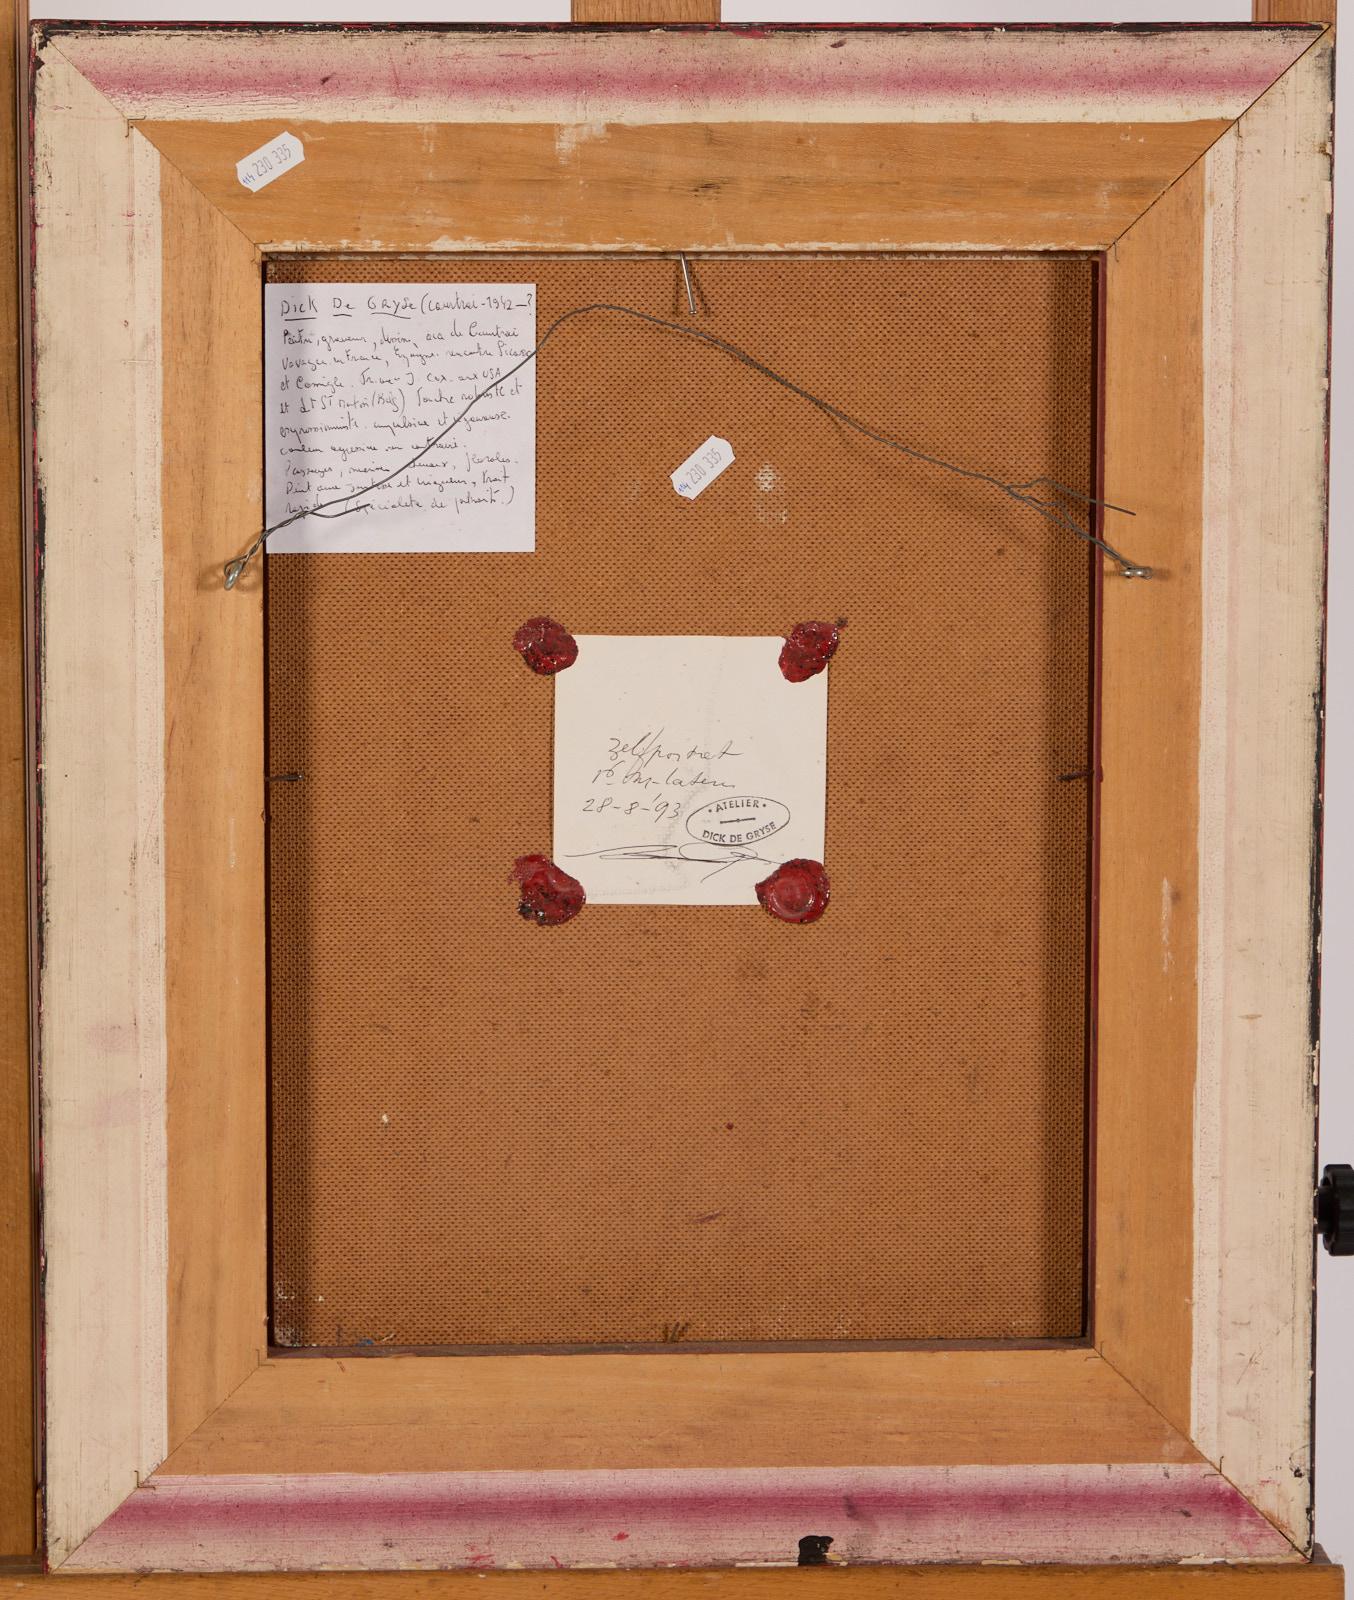 114 230 335
Dick De Gryse (Courtrai-1942-?
Peintre, graveur, dessin, aca de Courtrai
Voyages en France, Espagne. rencontre Picasso
et Corneille. aux USA
et St Martin touche robuste et
expressionniste. impulsive et vigoureuse.
couleur agressive ou contraire.
Paysages, marines, chevaux, florales.
Peint avec justesse et vigueur, trait
rapide (Spécialité de portraits.)
114 230 335
Zelfportret
St M-Latem
28-8-'93
• ATELIER •
DICK DE GRYSE